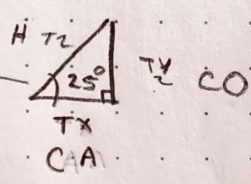 H T2
25°
Ty
2
CO
Tx
CA